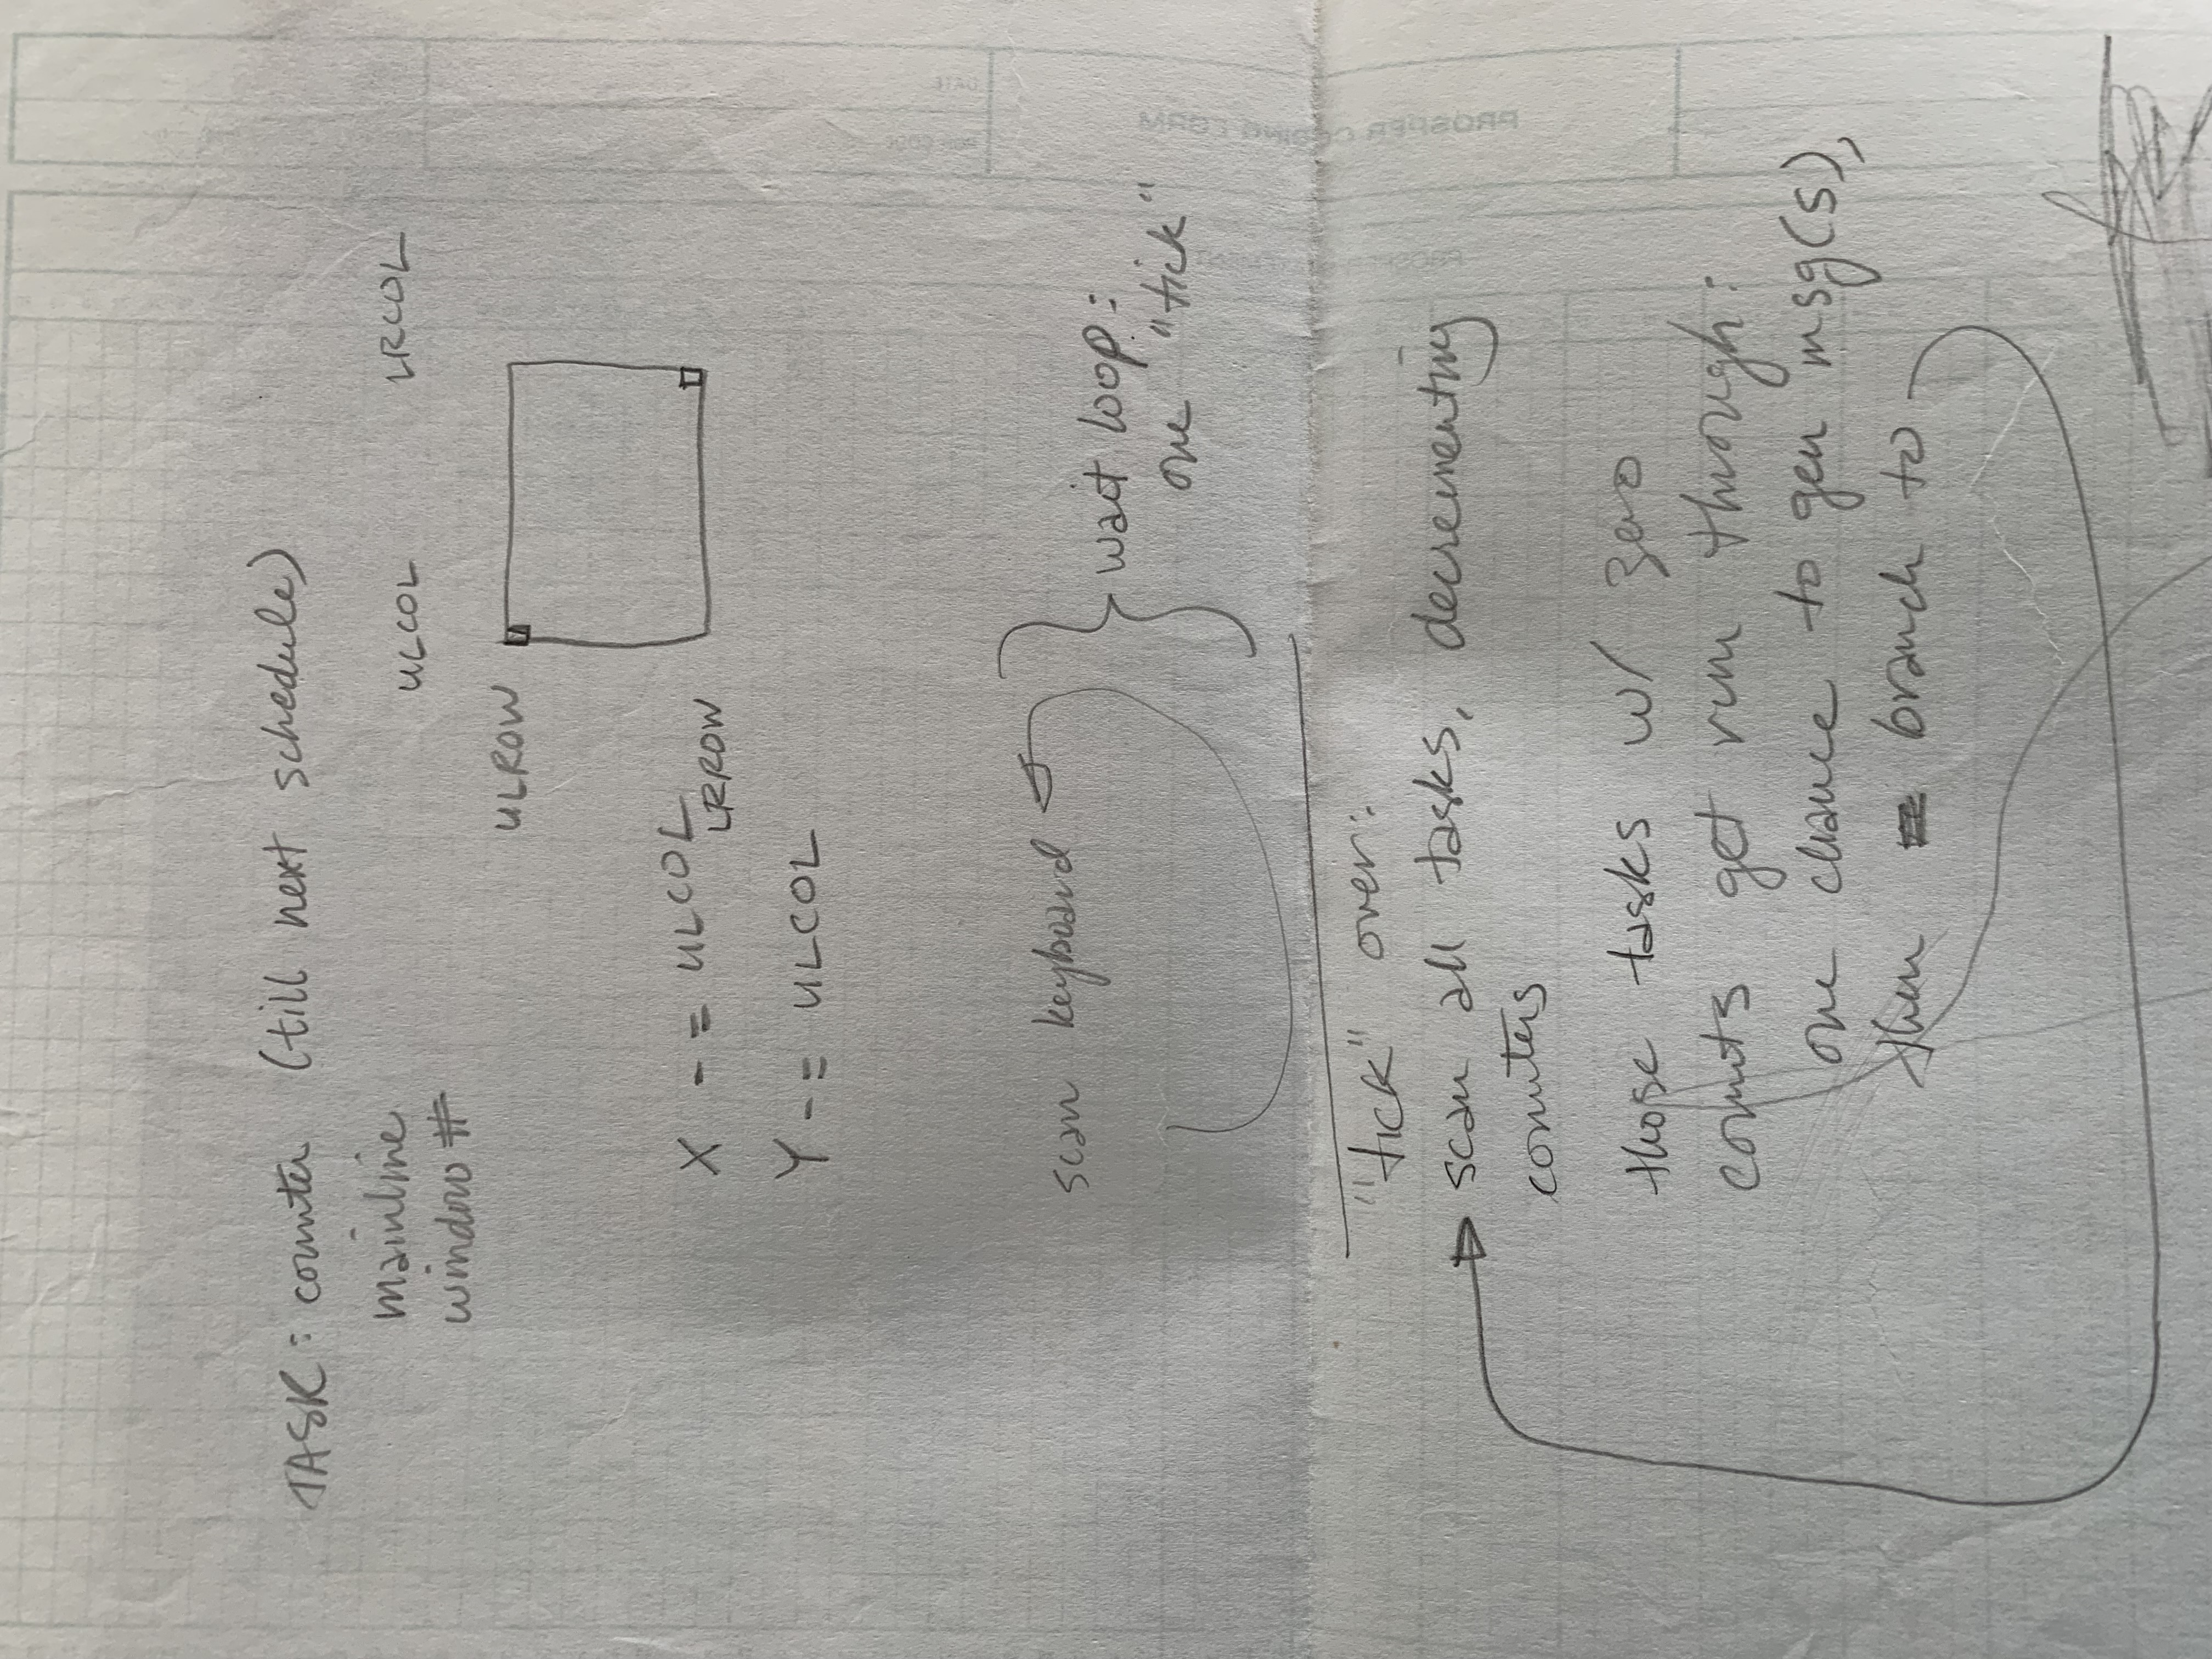 TASK: counter (till next schedule)
mainline
window #
ULCOL LRCOL
ULROW
X -= ULCOL
LRROW
Y -= ULCOL
scan keyboard
wait loop:
one "tick"
"tick" over:
scan all tasks, decrementing
counters
those tasks w/ zero
counts get run through:
one chance to gen msg(s),
then branch to